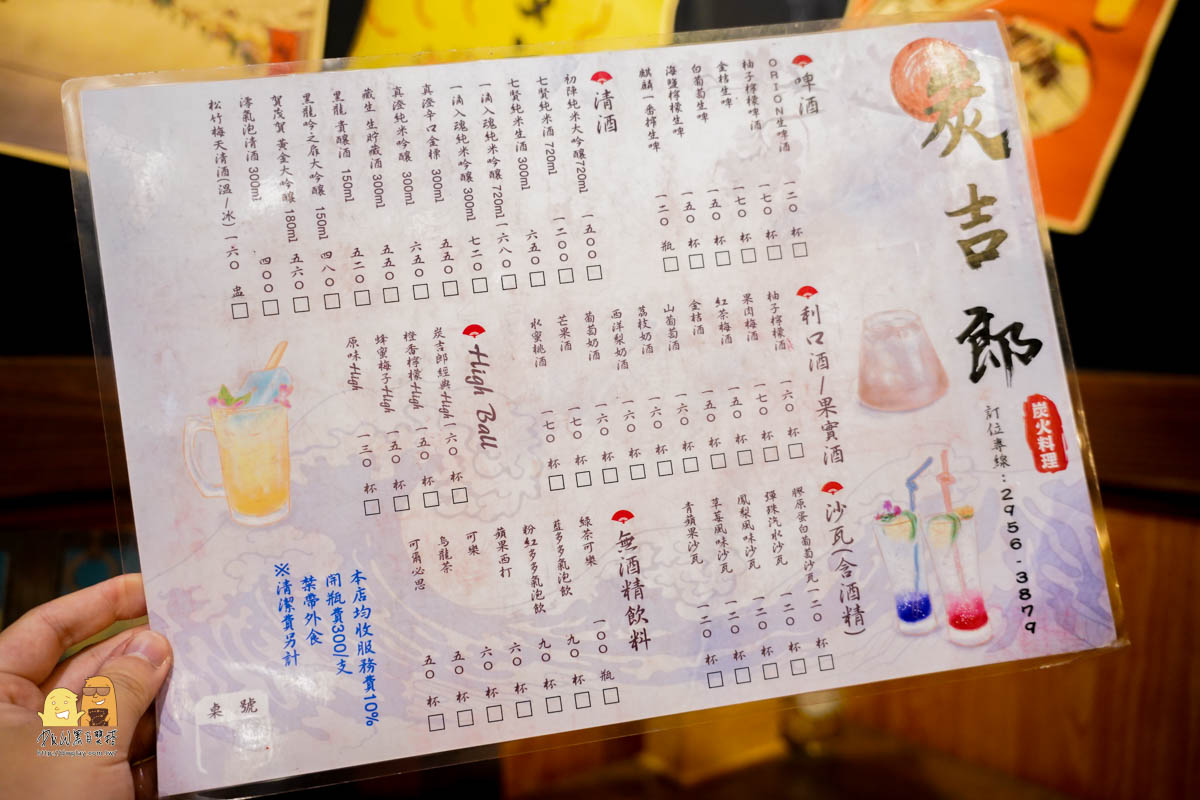 炭吉郎
炭火料理
訂位專線：2956-3879
啤酒
ORION生啤酒 一二〇 杯
柚子檸檬啤酒 一七〇 杯
金桔生啤 一七〇 杯
白葡萄生啤 一五〇 杯
海鹽檸檬生啤 一五〇 杯
麒麟一番搾生啤 一二〇 瓶
清酒
初陣純米大吟釀720ml 一五〇〇
七賢純米酒 720ml 一二〇〇
七賢純米生酒 300ml 六五〇
一滴入魂純米吟釀 720ml 一六八〇
一滴入魂純米吟釀 300ml 七二〇
真澄辛口金標 300ml 五五〇
真澄純米吟釀 300ml 六五〇
藏生 生貯藏酒 300ml 五五〇
黑龍 貴釀酒 150ml 五二〇
黑龍吟之扉大吟釀 150ml 四八〇
賀茂賀 黃金大吟釀 180ml 五六〇
澪氣泡清酒 300ml 四〇〇
松竹梅天清酒(溫/冰) 一六〇 盅
利口酒/果實酒
柚子檸檬酒 一六〇 杯
果肉梅酒 一七〇 杯
紅茶梅酒 一五〇 杯
金桔酒 一五〇 杯
山葡萄酒 一六〇 杯
荔枝奶酒 一六〇 杯
西洋梨奶酒 一六〇 杯
葡萄奶酒 一六〇 杯
芒果酒 一七〇 杯
水蜜桃酒 一七〇 杯
High Ball
炭吉郎經典High 一六〇 杯
橙香檸檬High 一五〇 杯
蜂蜜梅子High 一五〇 杯
原味High 一三〇 杯
沙瓦(含酒精)
膠原蛋白葡萄沙瓦 一二〇 杯
彈珠汽水沙瓦 一二〇 杯
鳳梨風味沙瓦 一二〇 杯
草莓風味沙瓦 一二〇 杯
青蘋果沙瓦 一二〇 杯
無酒精飲料
綠茶可樂 一〇〇 瓶
藍多多氣泡飲 九〇 杯
粉紅多多氣泡飲 九〇 杯
蘋果西打 六〇 杯
可樂 六〇 杯
烏龍茶 五〇 杯
可爾必思 五〇 杯
本店均收服務費10%
開瓶費300/支
禁帶外食
※清潔費另計
桌號